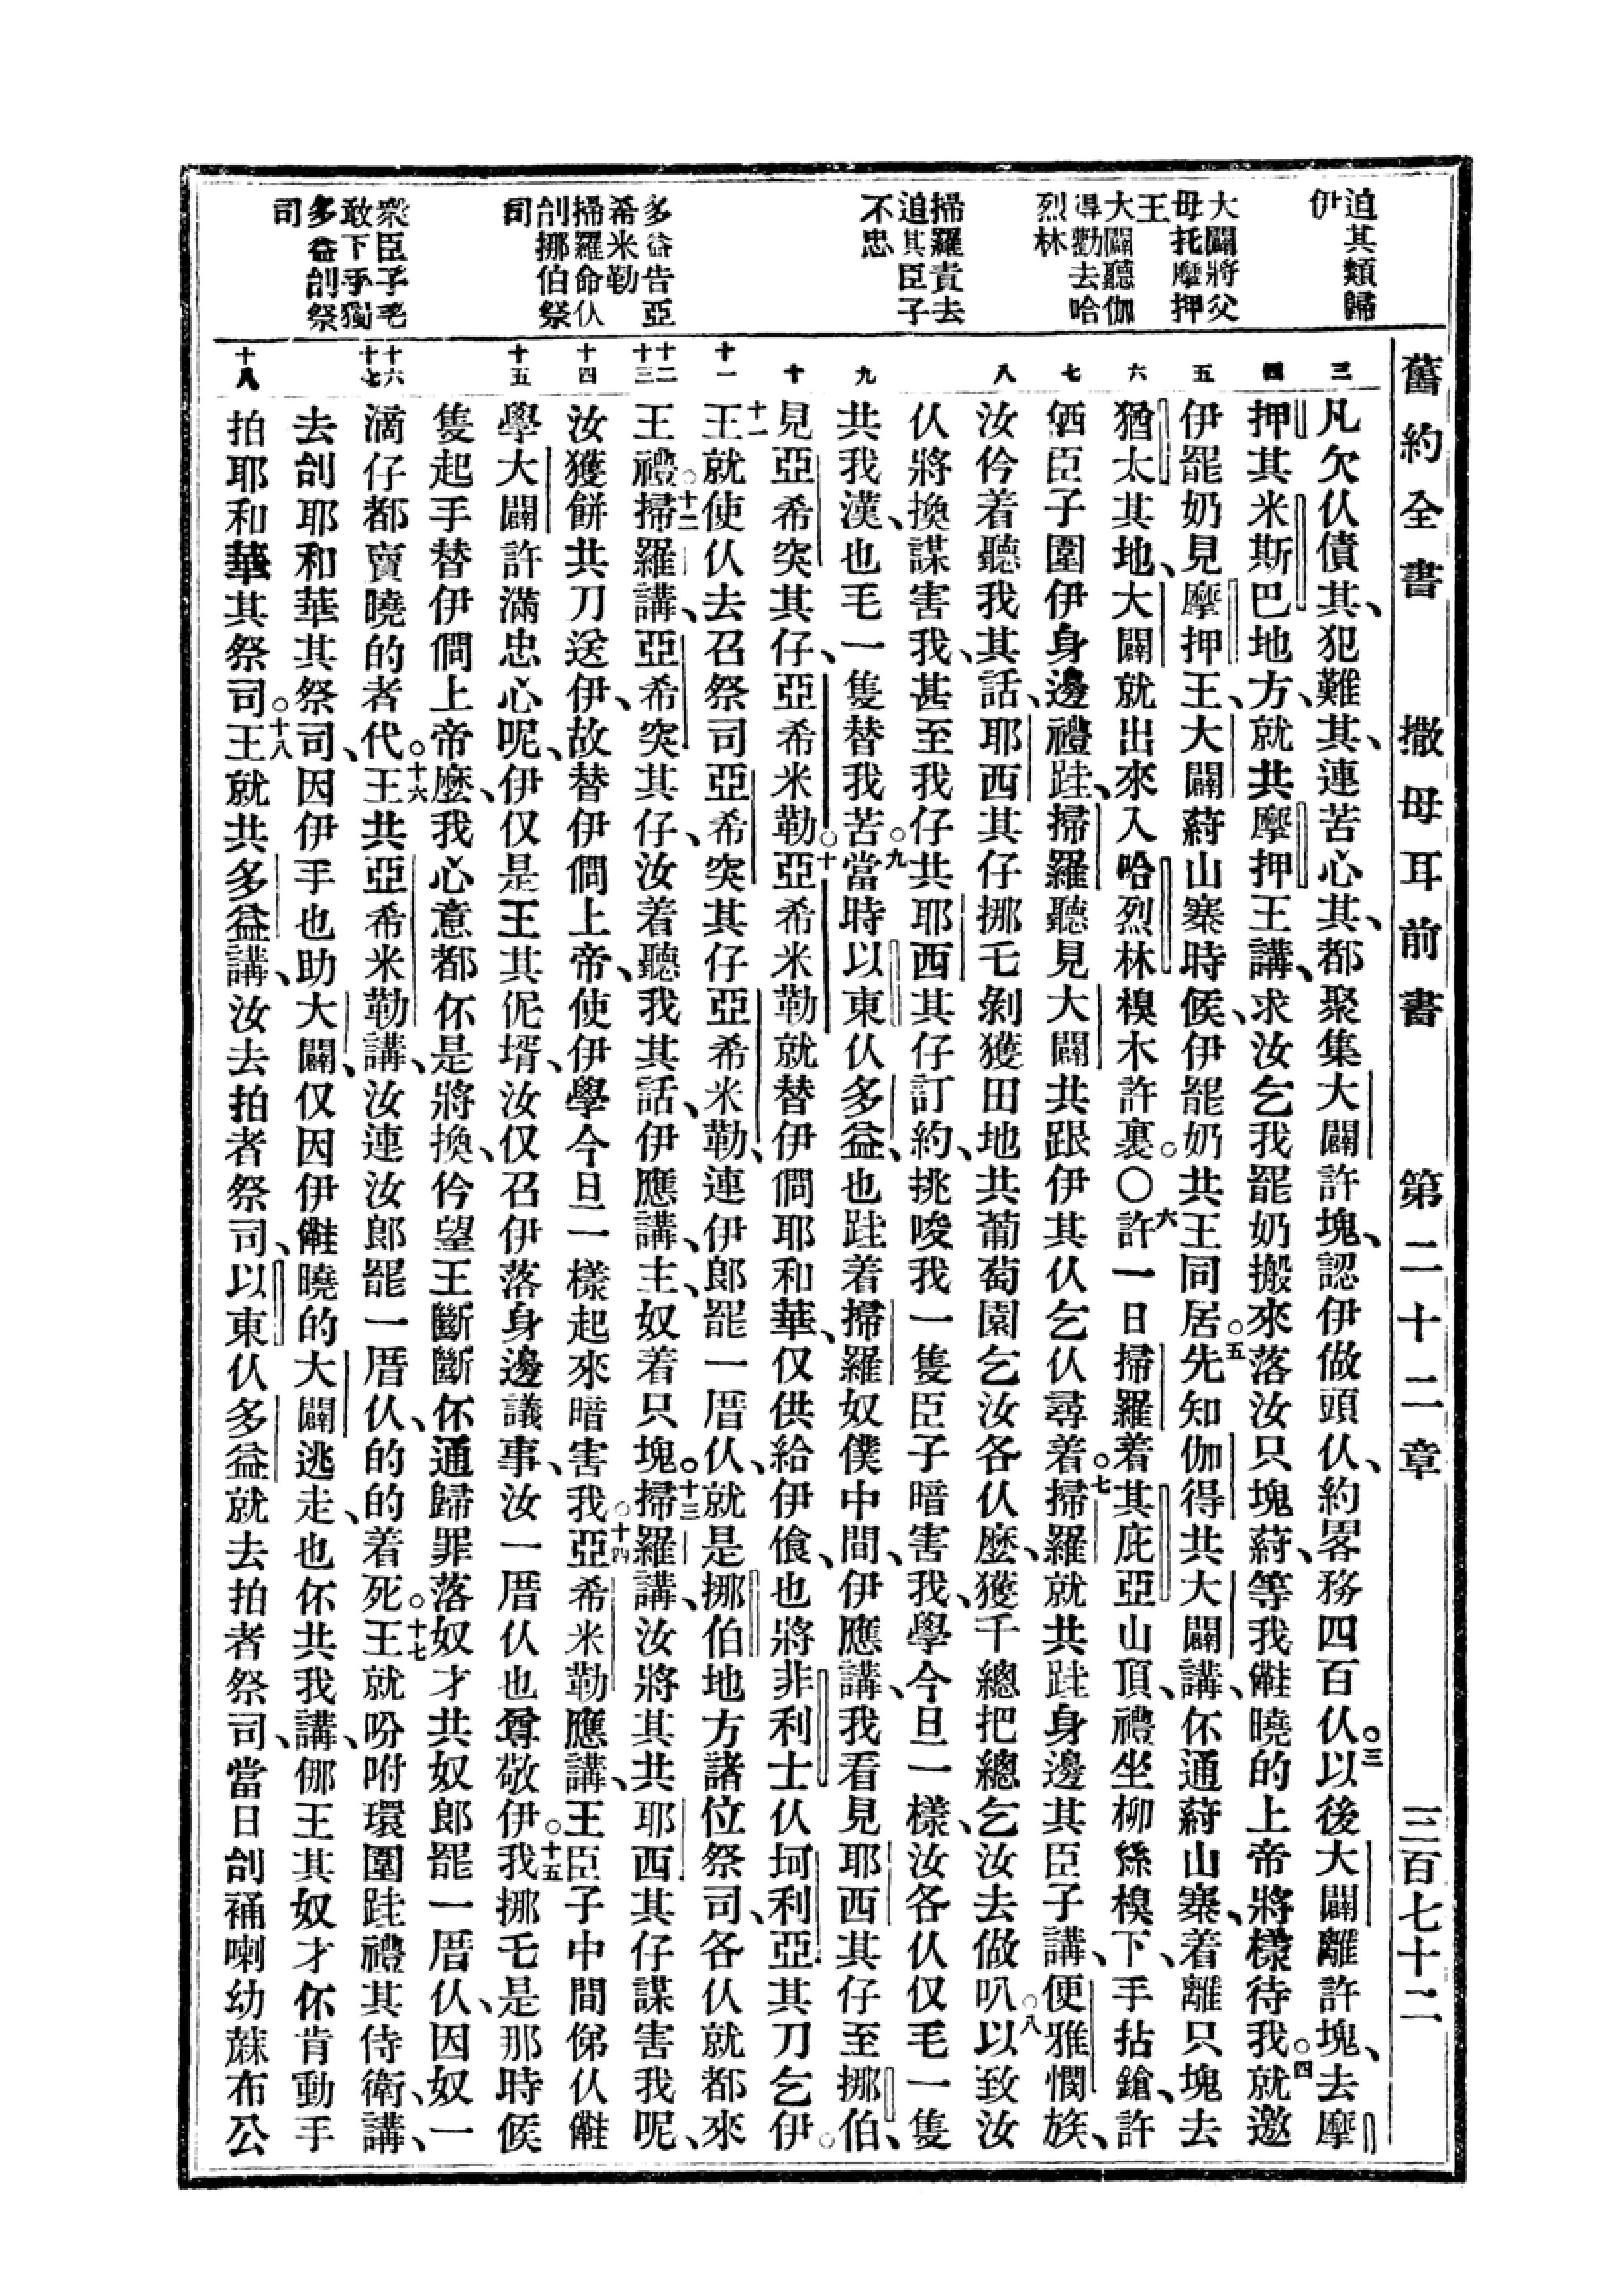 舊約全書　撒母耳前書　第二十二章　三百七十二
迫其類歸
伊
大闢將父
母托摩押
王
大闢聽伽
得勸去哈
烈林
掃羅責去
追其臣子
不忠
多益告亞
希米勒
掃羅命仈
刣挪伯祭
司
衆臣子毛
敢下手獨
多益刣祭
司
三
四
五
六
七
八
九
十
十一
十二
十三
十四
十五
十六
十七
十八
凡欠仈債其、犯難其、連苦心其、都聚集大闢許塊、認伊做頭仈、約畧務四百仈。三以後大闢離許塊、去摩
押其米斯巴地方、就共摩押王講、求汝乞我罷奶搬來落汝只塊蒔、等我𣍐曉的上帝將樣待我。四就邀
伊罷奶見摩押王、大闢蒔山寨時候、伊罷奶共王同居。五先知伽得共大闢講、伓通蒔山寨、着離只塊去
猶太其地、大闢就出來入哈烈林樹木許裏。〇六許一日掃羅着其庇亞山頂、禮坐柳絲樹下、手拈鎗、許
仴臣子圍伊身邊禮跬、掃羅聽見大闢共跟伊其仈乞仈尋着。七掃羅就共跬身邊其臣子講、便雅憫族、
汝仱着聽我其話、耶西其仔挪乇剝獲田地共葡萄園乞汝各仈麽、獲千總把總乞汝去做叭。八以致汝
仈將換謀害我、甚至我仔共耶西其仔訂約、挑唆我一隻臣子暗害我、學今旦一樣、汝各仈仅毛一隻
共我漢、也毛一隻替我苦。九當時以東仈多益、也跬着掃羅奴僕中間、伊應講、我看見耶西其仔至挪伯、
見亞希突其仔、亞希米勒。十亞希米勒就替伊僴耶和華、仅供給伊飡、也將非利士仈坷利亞其刀乞伊。
十一王就使仈去召祭司亞希突其仔亞希米勒、連伊郎罷一厝仈、就是挪伯地方諸位祭司、各仈就都來
王禮。十二掃羅講、亞希突其仔、汝着聽我其話、伊應講、主、奴着只塊。十三掃羅講、汝將其共耶西其仔謀害我呢、
汝獲餅共刀送伊、故替伊僴上帝、使伊學今旦一樣起來暗害我。十四亞希米勒應講、王臣子中間俤仈𣍐
學大闢許滿忠心呢、伊仅是王其伲壻、汝仅召伊落身邊議事、汝一厝仈也尊敬伊。十五我挪乇是那時候
隻起手替伊僴上帝麽、我心意都伓是將換、仱望王斷斷伓通歸罪落奴才共奴郎罷一厝仈、因奴一
滴仔都賣曉的者代。十六王共亞希米勒講、汝連汝郎罷一厝仈、的的着死。十七王就吩咐環圍跬禮其侍衛講、
去刣耶和華其祭司、因伊手也助大闢、仅因伊𣍐曉的大闢逃走、也伓共我講、㑚王其奴才伓肯動手
拍耶和華其祭司。十八王就共多益講、汝去拍者祭司、以東仈多益就去拍者祭司、當日刣𥙷喇幼蔴布公